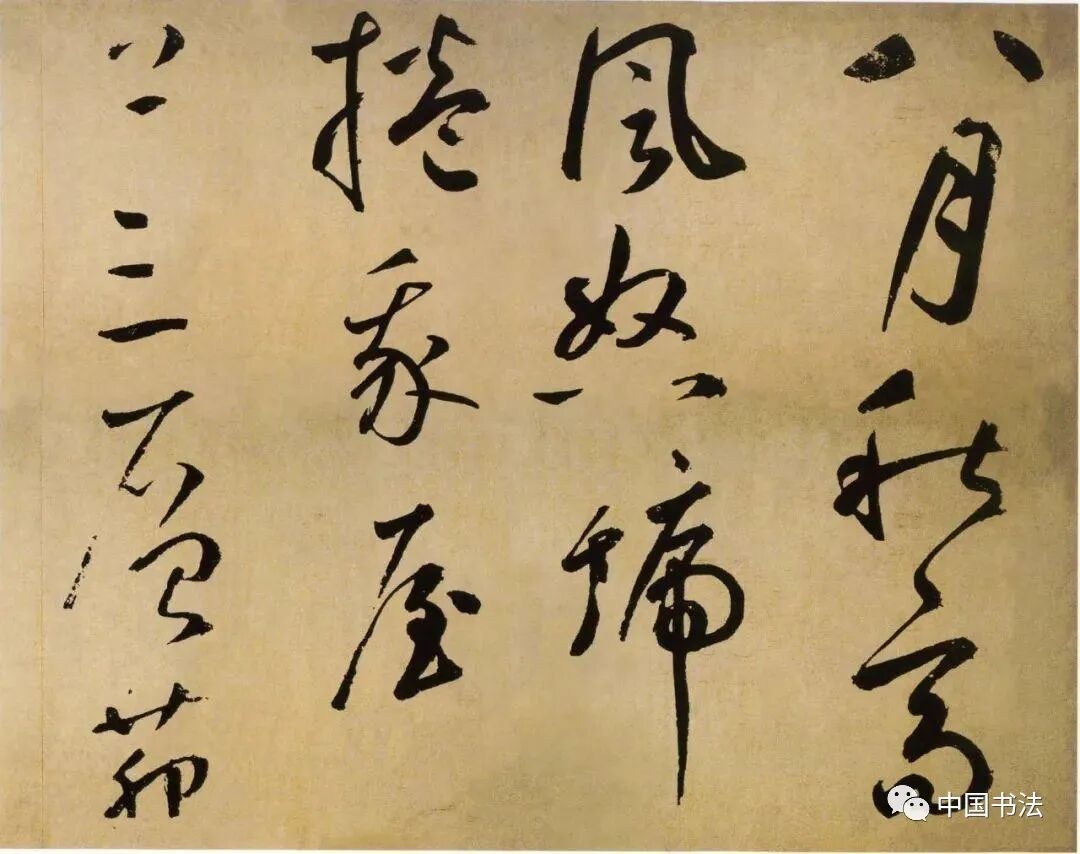 八月秋高
風怒號
捲我屋
上三層茆
中国书法